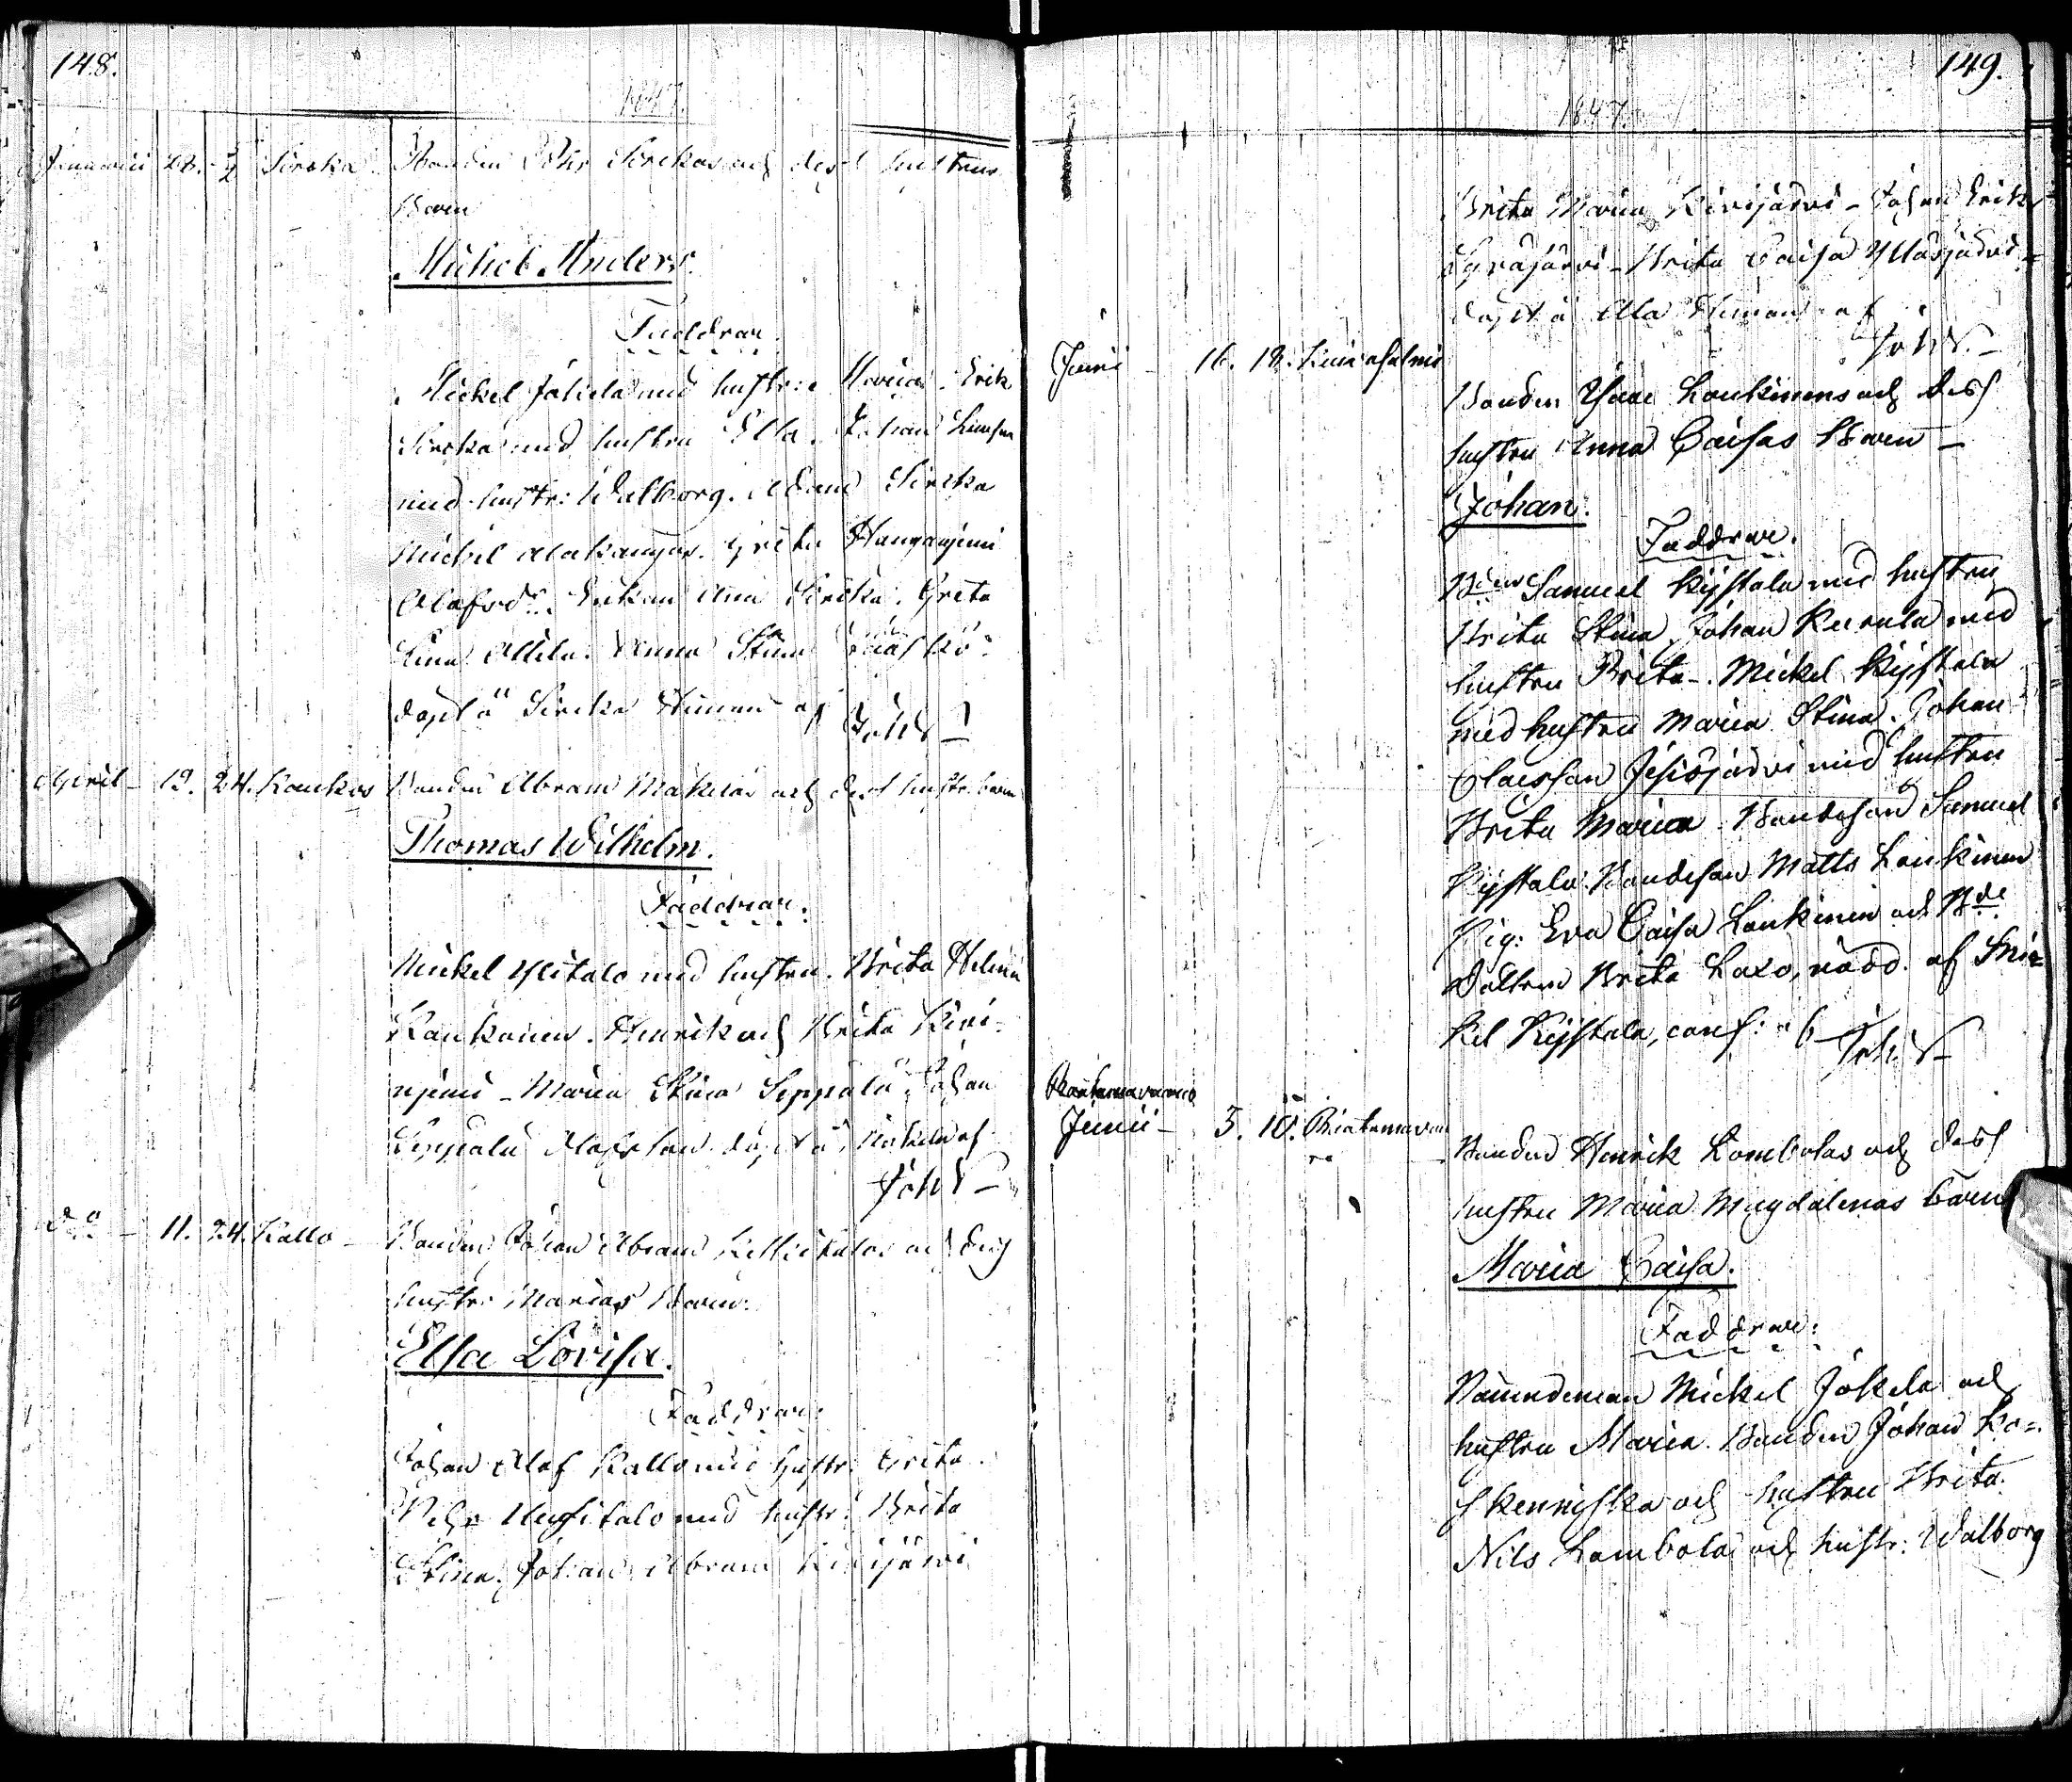 148.
1847.
Januarii 28. 2/2 Sircka Bonden Pehr Sirckas och dess hustrus
Barn
Michel Anders.
Faddrar.
Mickel Jokela med hustru Maria. Erik
Sircka med hustru Ella. Johan
med hustr: Walborg. Adam Sircka
Michel Alakangas. Greta Hanganjemi
Olofsdr. Enkan Ana Sircka. Greta
Lina Ollila. Anna Stina
döpt å Sircka Himan af Joh W
April - 19. 24. Kaukos Bonden Abram Makelas och dess hustr: barn
Thomas Wilhelm.
Faddrar.
Mickel Ylitalo med hustru. Brita Helena
Kaukonen. Henrik och Brita Kini=
njemi - Maria Stina Seppälä. Johan
Seppälä Olofsson döpt å Mäkelä af
Joh W
do - 11. 24. Kallo - Bonden Johan Abram och dess
hustr: Marias Barn.
Elsa Lovisa.
Faddrar.
Johan Olof Kallo med hustr: Greta.
Pehr Uusitalo med hustr: Brita
Stina. Johan Abram Kinijärvi
149.
1847.
Brita Maria Kinijärvi - Johan Erik
- Brita Caisa Ylläsjärvi -
döpt å Ala Himan af
Joh W. -
Junii - 16. 18.
Bonden Isaac Lonkinens och dess
hustru Anna Caisas Barn -
Johan.
Faddrar.
Bden Samuel Kijstala med hustru
Brita Stina, Johan Kerrala med
hustru Brita -. Mickel Kijstala
med hustru Maria Stina. Johan
Claesson Jesisjärvi med hustru
Brita Maria - Bondeson Samuel
Kijstala. Bondeson Matts Lonkinen
Pig: Eva Caisa Lonkinen och Bde
Dottren Brita Laxo, nödd. af Mic=
kel Kijstala, conf: af Joh. W -
Rautusvuoma
Junii - 5. 10. Rautusvuoma
Bonden Henrik Lombolas och dess
hustru Maria Magdalenas barn
Maria Caisa.
Faddrar.
Nämndeman Mickel Jokela och
hustru Maria. Bonden Johan Ko=
skenniska och hustru Brita.
Nils Lombola och hustr: Walborg